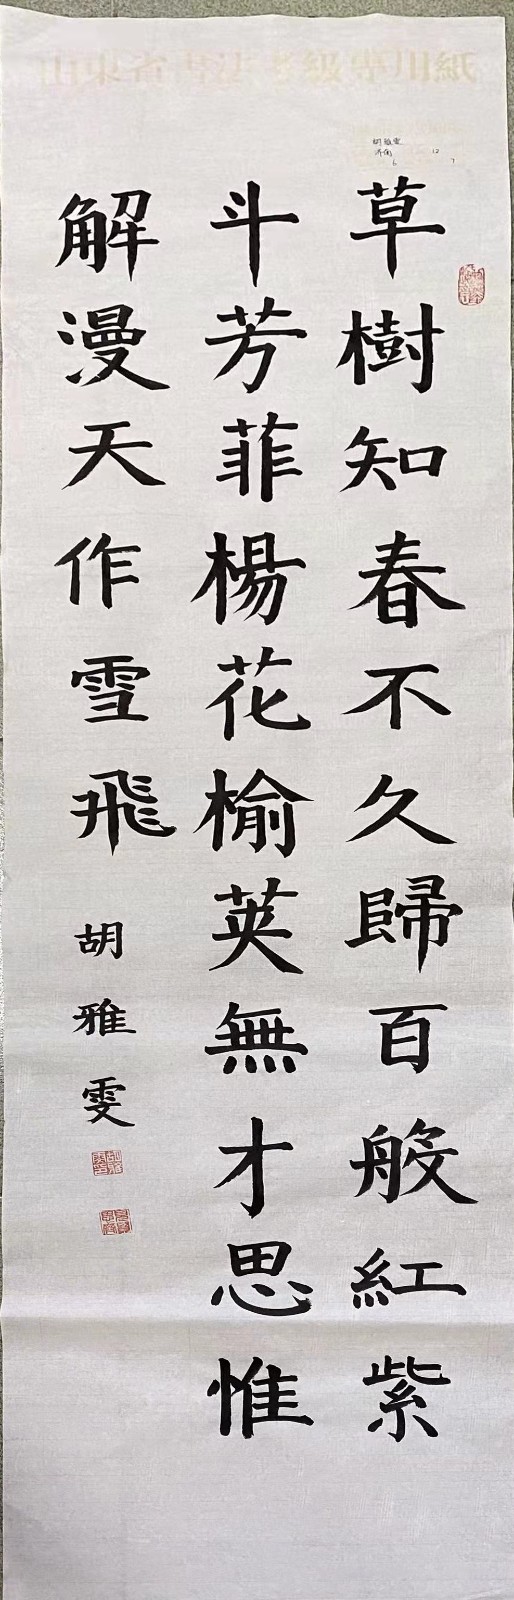 山東省書法考級專用紙
胡雅雯
济南
12
6
7
草樹知春不久歸百般紅紫
斗芳菲楊花榆莢無才思惟
解漫天作雪飛
胡雅雯